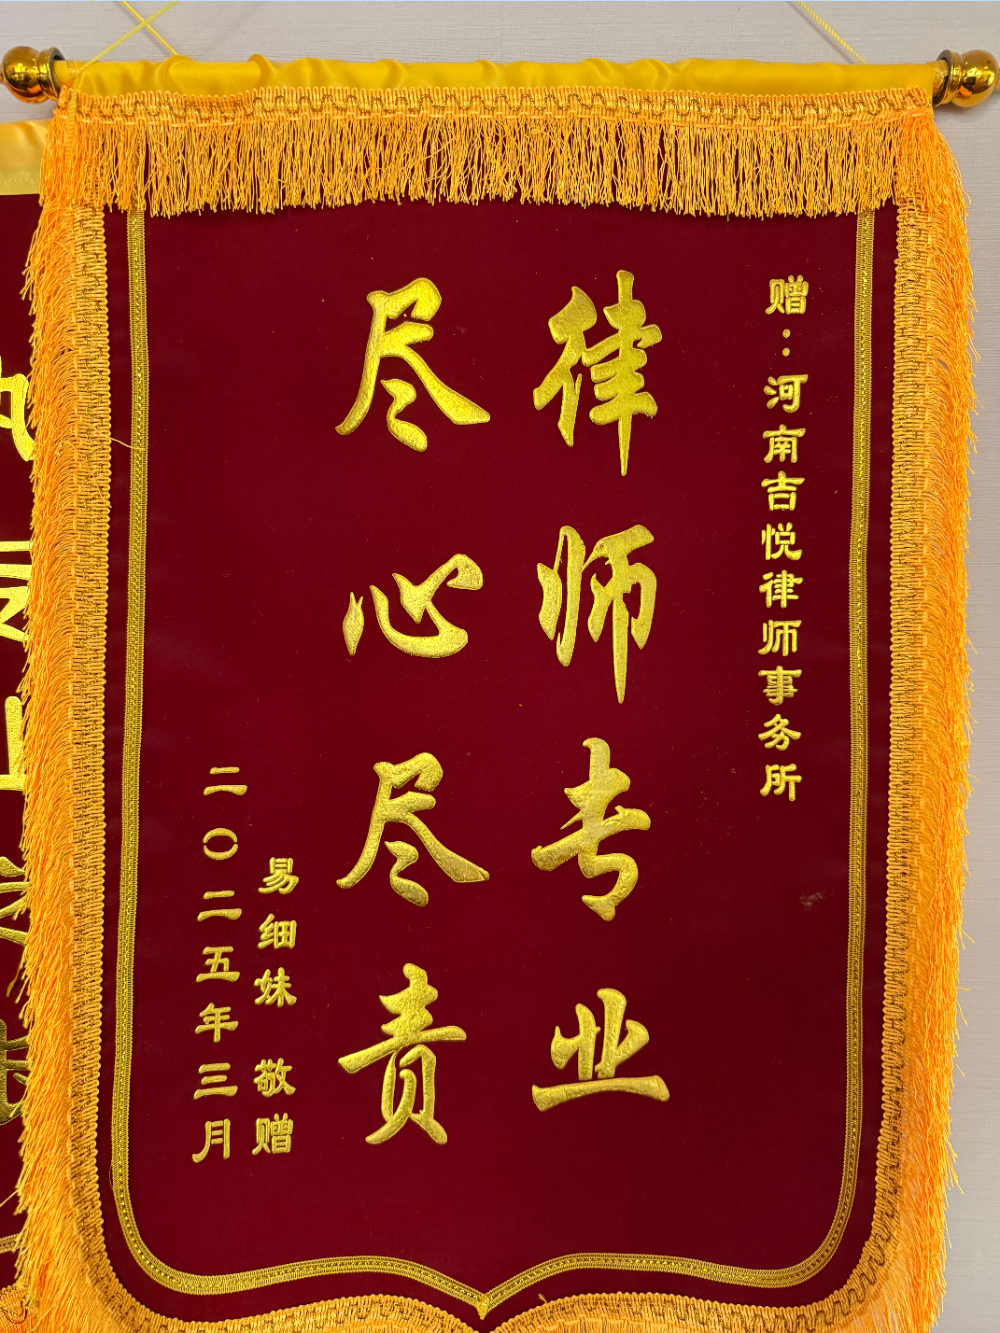 赠：河南吉悦律师事务所
律师专业
尽心尽责
易细妹 敬赠
二〇二五年三月